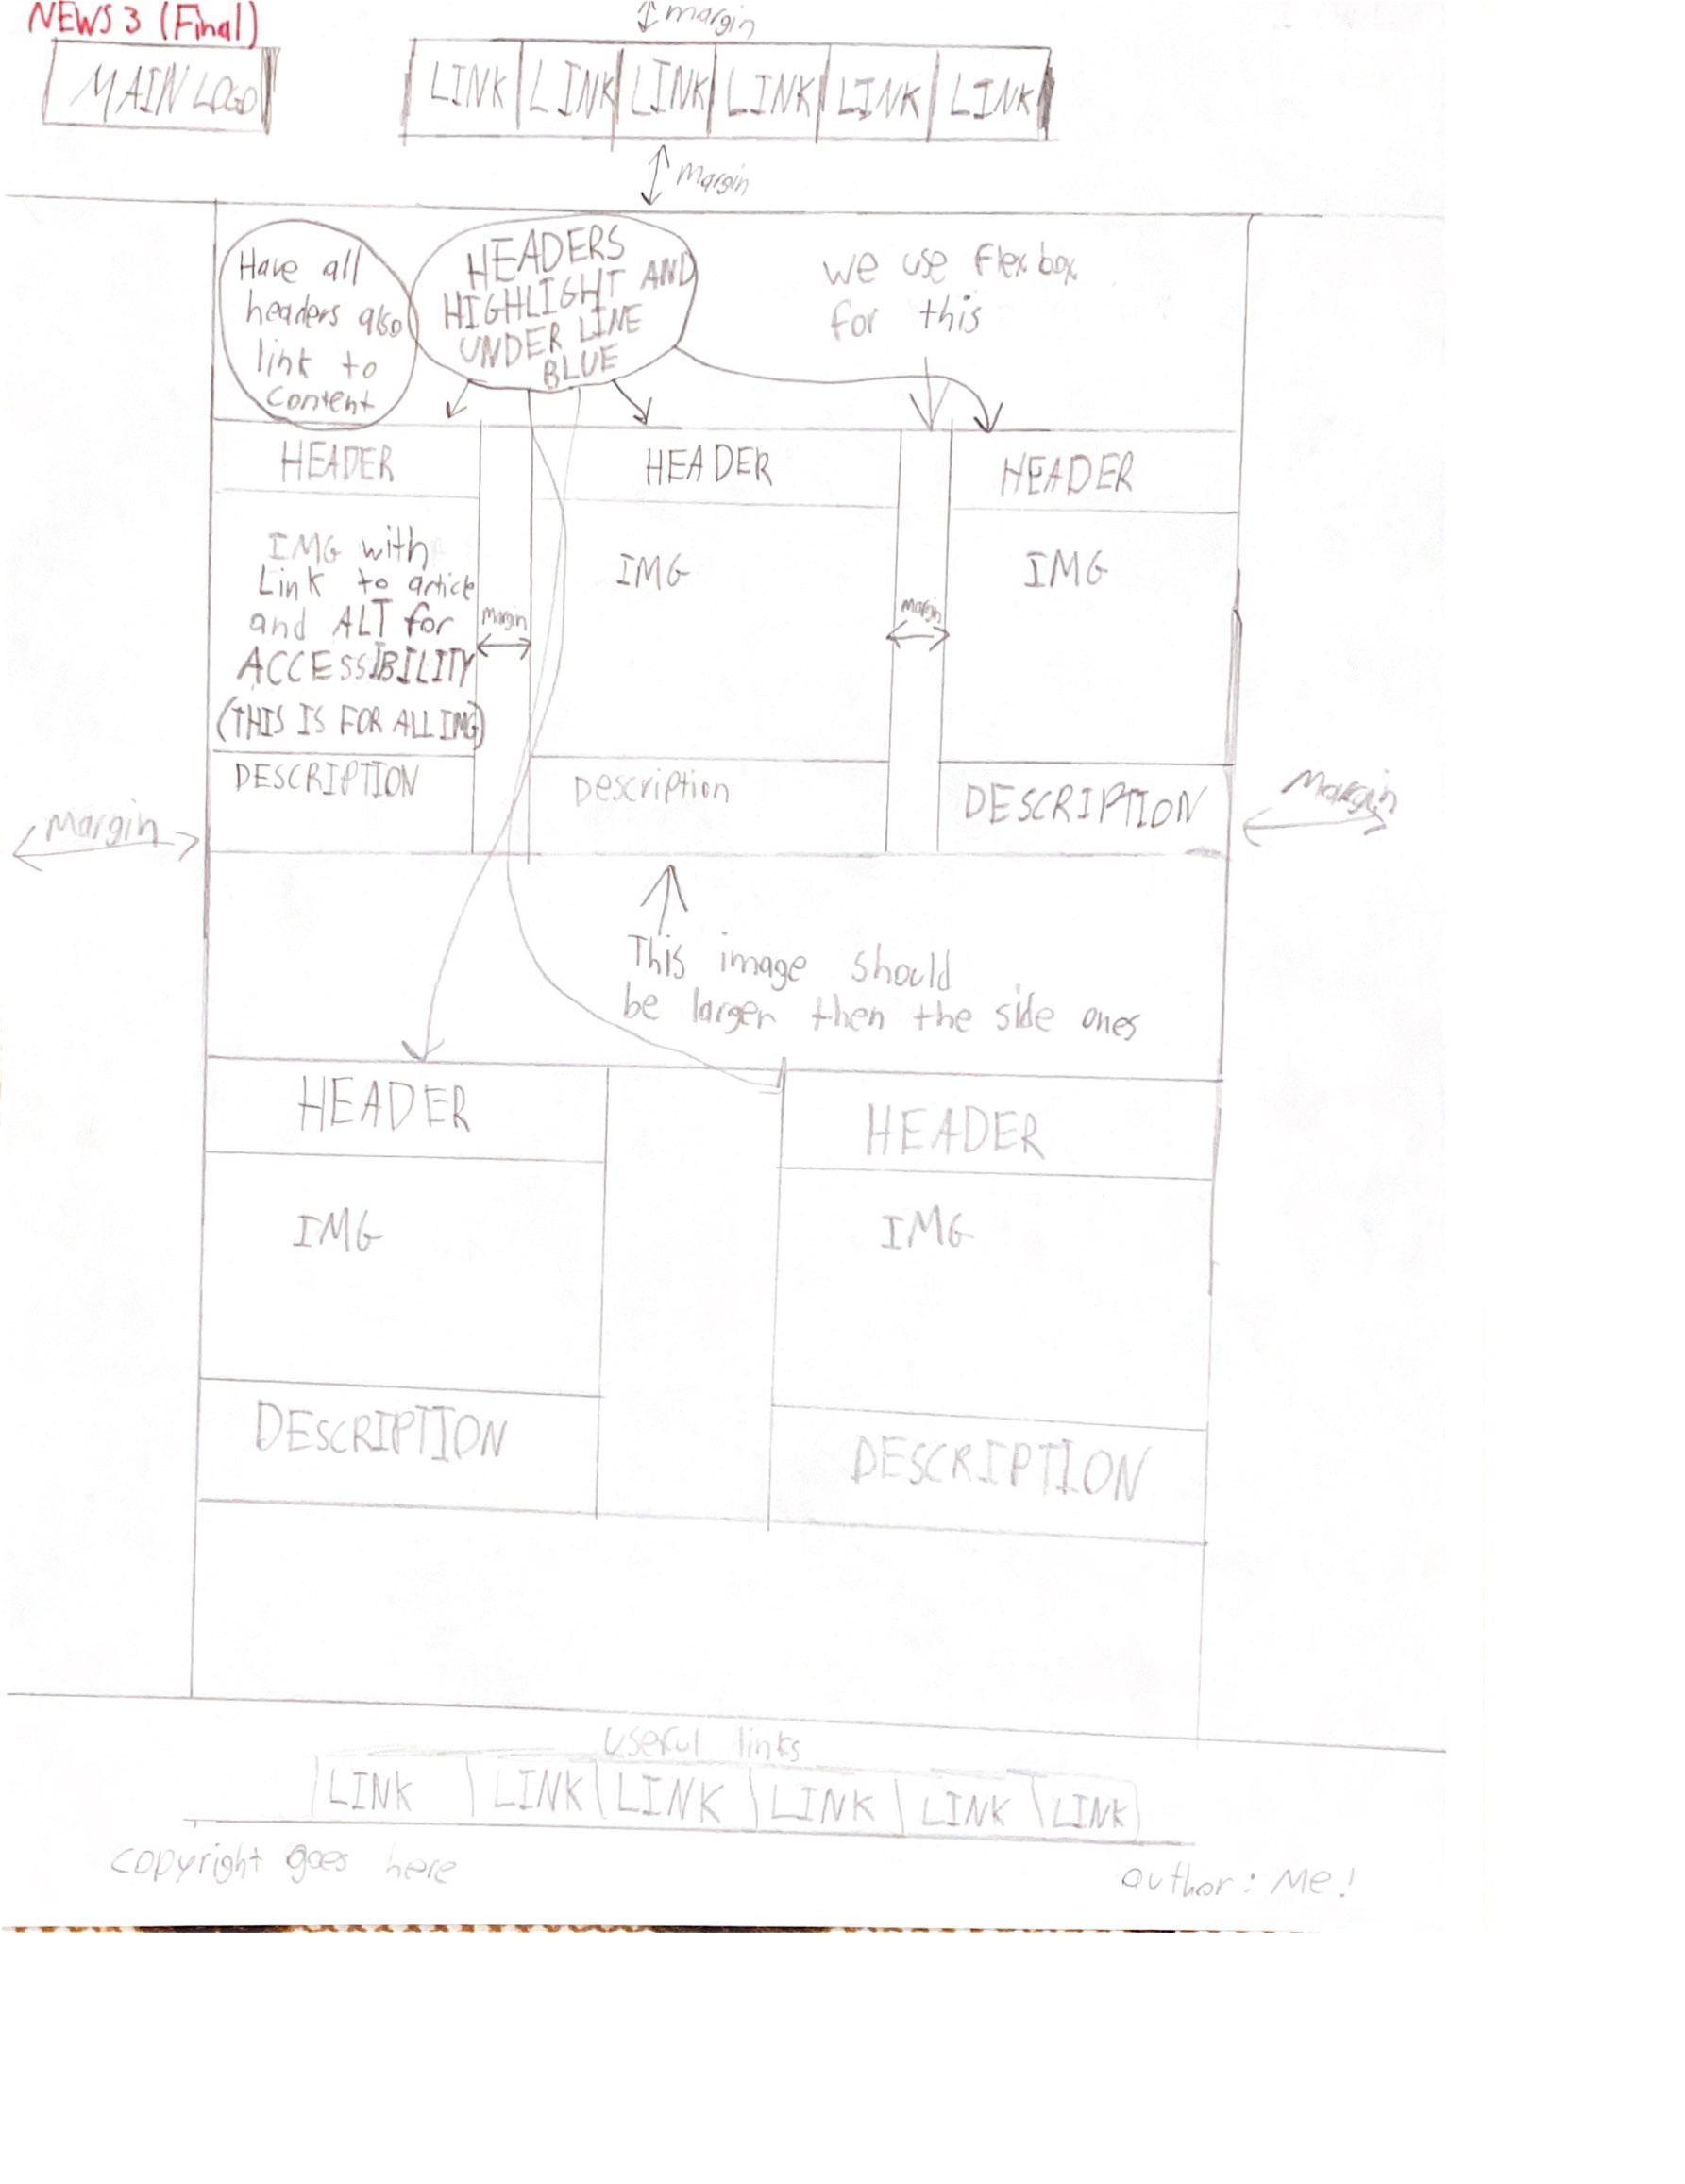 NEWS 3 (Final)
margin
MAIN LOGO
LINK LINK LINK LINK LINK LINK
Margin
Have all
headers also
link to
Content
HEADERS
HIGHLIGHT AND
UNDER LINE
BLUE
we use Flex box
for this
HEADER
HEADER
HEADER
IMG with
Link to article
and ALT for
ACCESSIBILITY
(THIS IS FOR ALL IMG)
Margin
IMG
Margin
IMG
DESCRIPTION
Description
DESCRIPTION
Margin
Margin
This image should
be larger then the side ones
HEADER
HEADER
IMG
IMG
DESCRIPTION
DESCRIPTION
useful links
LINK LINK LINK LINK LINK LINK
copyright goes here
author: Me!